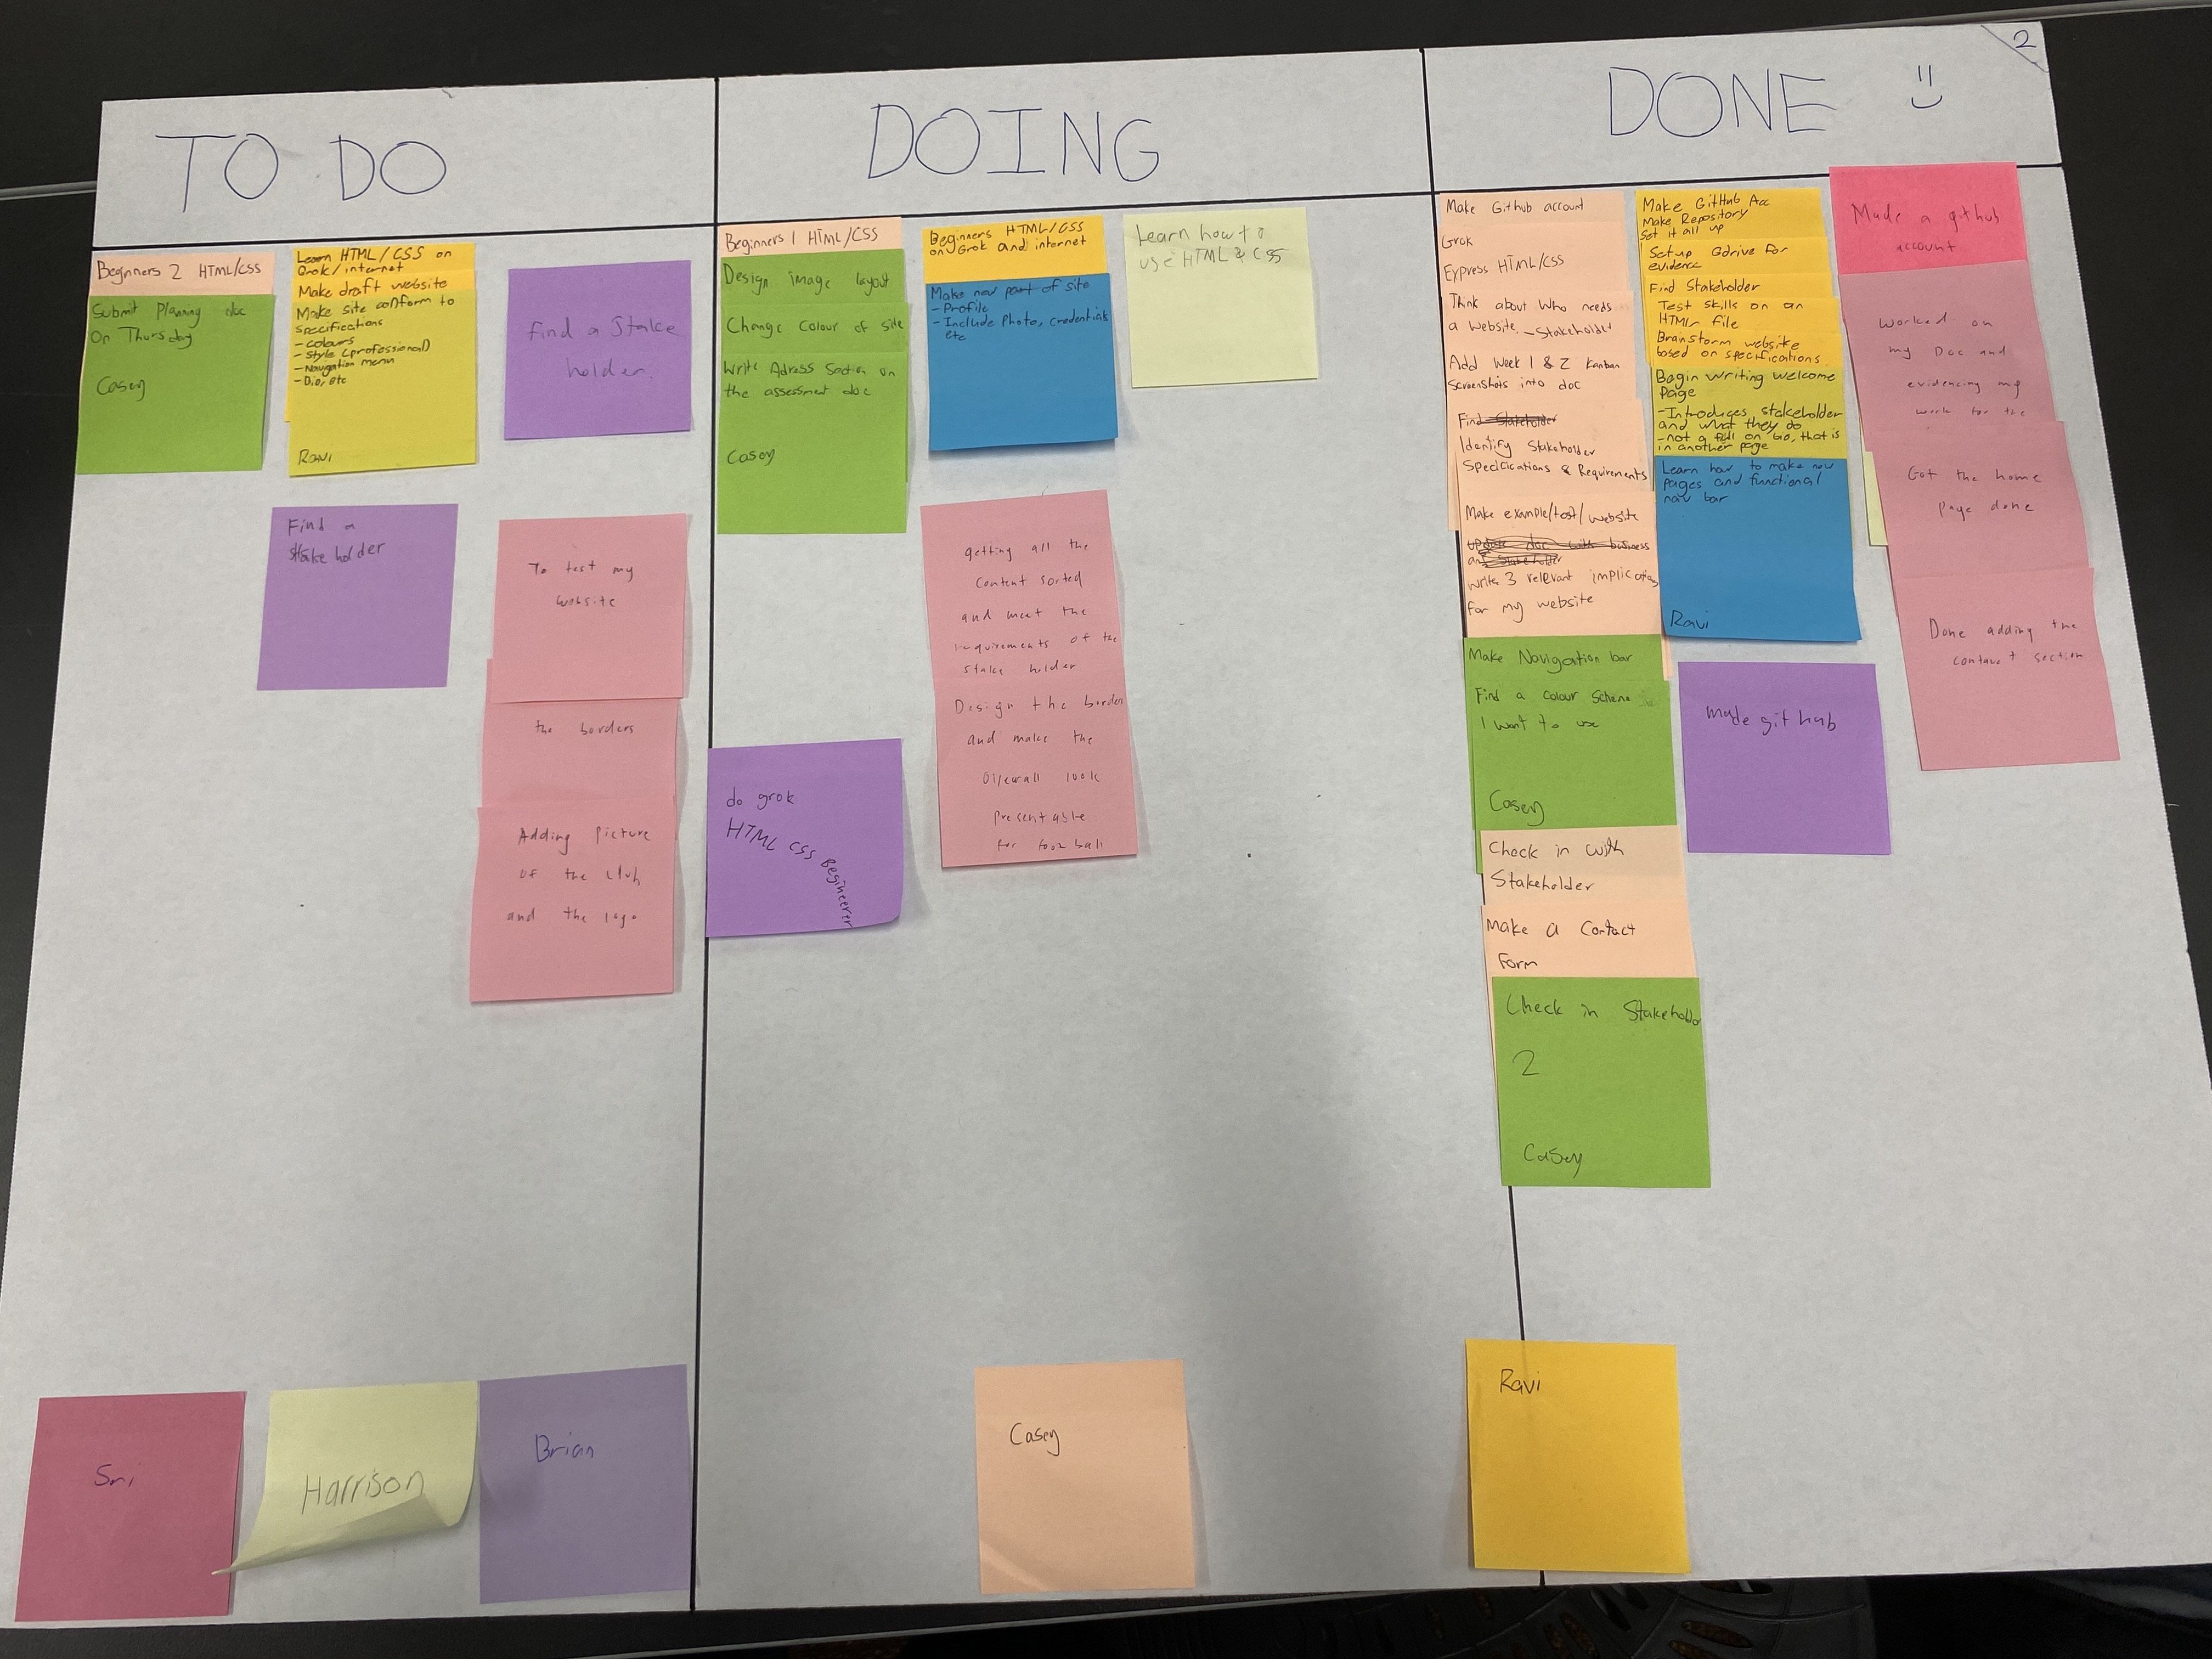 2
TO DO
DOING
DONE
Beginners 2 HTML/CSS
Submit Planning doc
On Thursday
Casey
Learn HTML/CSS on
Grok/internet
Make draft website
Make site conform to
specifications
- colours
- Style (professional)
- Navigation menu
- Bio, etc
Ravi
find a Stake
holder.
Find a
stake holder
To test my
website
the borders
Adding picture
of the club
and the logo
Beginners 1 HTML/CSS
Design image layout
Change Colour of site
Write Adress Section on
the assessment doc
Casey
Beginners HTML/CSS
on Grok and internet
Make new part of site
- Profile
- Include Photo, credentials
etc
Learn how to
use HTML & CSS
getting all the
content sorted
and meet the
requirements of the
stake holder
Design the border
and make the
overall look
presentable
for football
do grok
HTML CSS Begineerer
Make Github account
Grok
Express HTML/CSS
Think about Who needs
a website. - Stakeholder
Add Week 1 & 2 Kanban
Screenshots into doc
Find Stakeholder
Identify Stakeholder
Specifications & Requirements
Make example/test/website
update doc with business
and Stakeholder
write 3 relevant implications
for my website
Make Navigation bar
Find a Colour Scheme
I want to use
Casey
Check in with
Stakeholder
Make a Contact
Form
Check in Stakeholder
2
Casey
Make GitHub Acc
Make Repository
Set it all up
Setup Gdrive for
evidence
Find Stakeholder
Test skills on an
HTML file
Brainstorm website
based on specifications
Begin writing welcome
Page
- Introduces stakeholder
and what they do
- not a full on bio, that is
in another page
Learn how to make new
pages and functional
nav bar
Ravi
made git hub
Made a github
account
Worked on
my Doc and
evidencing my
work for the
Got the home
page done
Done adding the
contact section
Sri
Harrison
Brian
Casey
Ravi